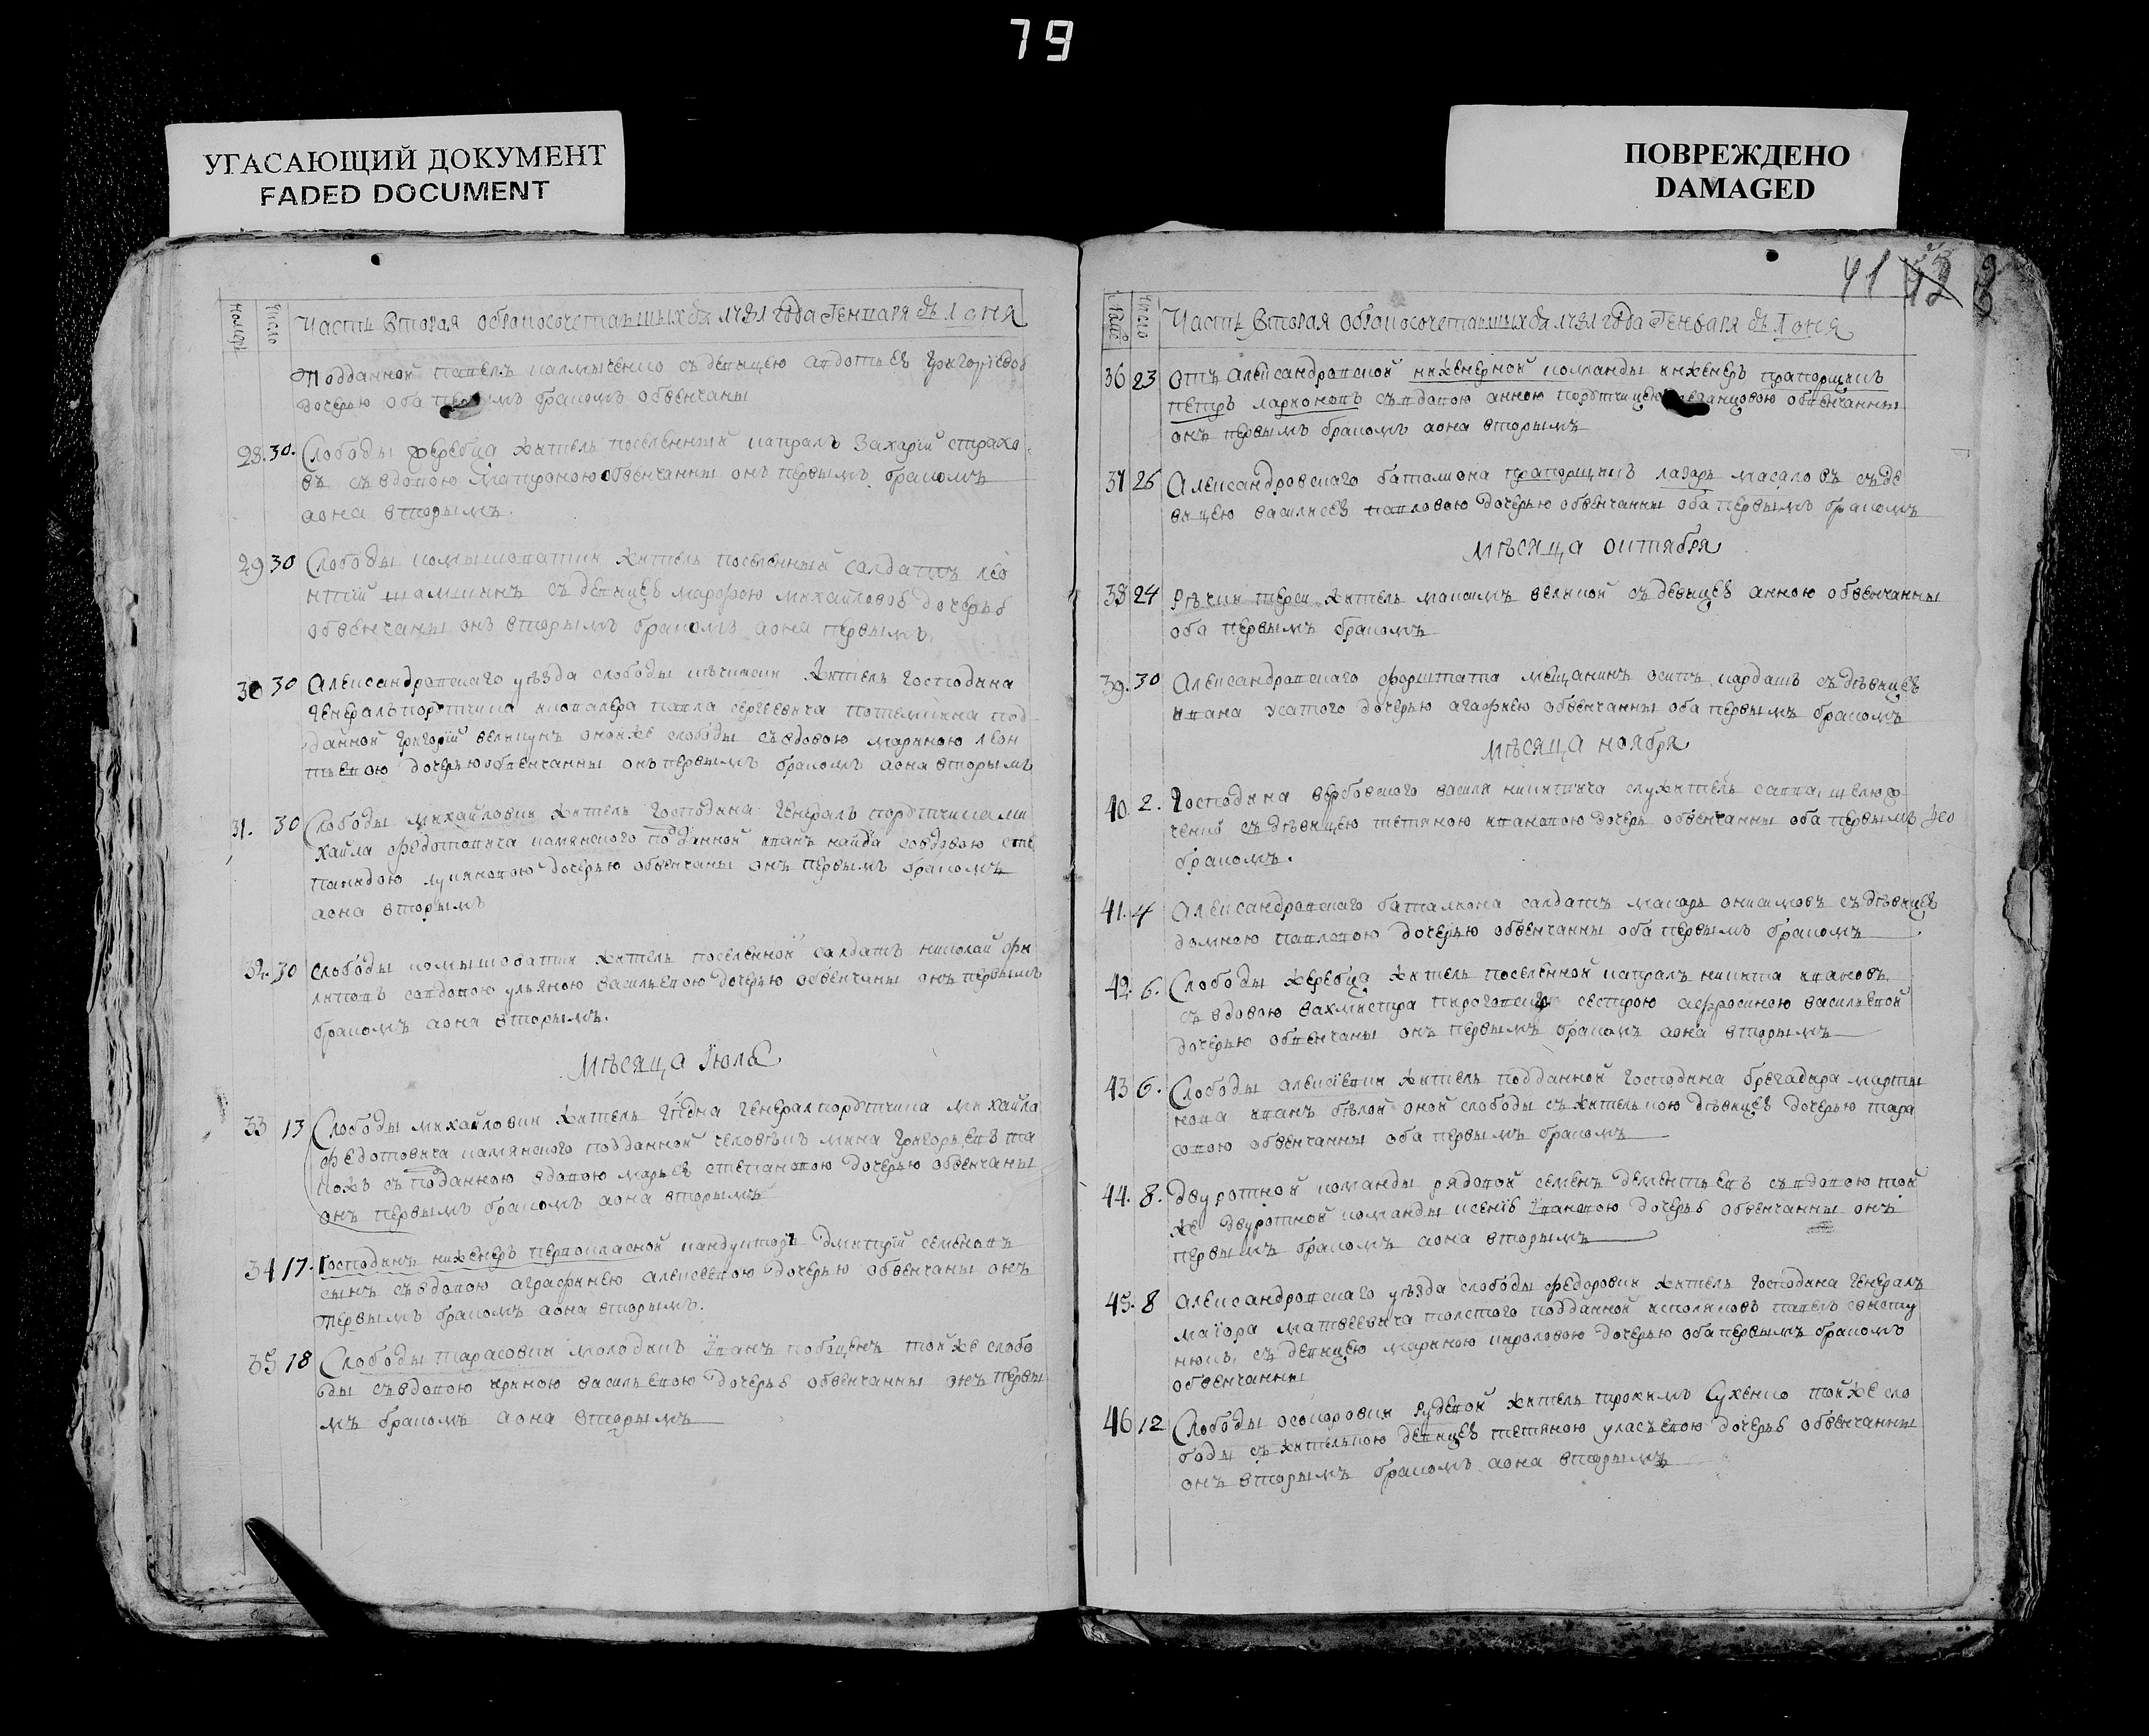 79
УГАСАЮЩИЙ ДОКУМЕНТ
FADED DOCUMENT
ПОВРЕЖДЕНО
DAMAGED
41
номеръ
число
Часть вторая обракосочетавшихся года генваря съ 1 дня
Подданной павелъ съ девицею авдотьев григориевою
дочерью оба бракомъ обвенчаны
28. 30. Слободы жеребца житель поселенный капралъ захарій страхо
въ съ вдовою матроною обвенчанны онъ первымъ бракомъ
аона вторымъ.
29 30 Слободы комышоватки житель поселенный салдатъ лео
нтий съ девицев марфою михайловов дочерьв
обвенчаны онъ вторымъ бракомъ аона первымъ.
30 30 Александровскаго уѣзда слободы житель господина
генералъпорутчика кавалера павла сергеевича потемкина под
данной григорій великунъ оноиже слободы съвдовою мариною леон
тьевою дочерьюобвенчанны онъпервымъ бракомъ аона вторымъ
31. 30 Слободы михайловки житель господина генералъ порутчиками
хайла федотовича камянского подданной иванъ найда совдовою сте
панидою лукяновою дочерью обвенчаны онъ первымъ бракомъ
аона вторымъ
32. 30 слободы комышоватки житель поселенной салдатъ николай фи
липовъ совдовою ульяною васильевою дочерью обвенчаны онъ первымъ
бракомъ аона вторымъ.
Мѣсяца Іюля
33 13 Слободы михайловки житель генералпорутчика михайла
федотовича камянского подданной человѣкъ мина григорьевъ та
кожъ съ подданною вдовою марьев степановою дочерью обвенчаны
онъ первымъ бракомъ аона вторымъ
34 17. Господинъ инженеръ первокласной кандукторъ дмитрій семеновъ
сынъ съвдовою аграфинею алексеевою дочерью обвенчаны онъ
первымъ бракомъ аона вторымъ.
35 18 Слободы тарасовки молодикъ иванъ тойже слобо
ды съвдовою ириною васильевою дочерьв обвенчанны онъ первы
мъ бракомъ аона вторымъ
число
Часть вторая обракосочетавшихся года генваря съ 1 дня
36 23 отъ александровской инженерной команды инженеръ прапорщикъ
петръ ларионовъ съвдовою анною порутчицею обвенчанны
онъ первымъ бракомъ аона вторымъ
37 26 Александровскаго баталиона прапорщикъ лазарь масаловъ съде
вицею василисев павловою дочерью обвенчанны оба первымъ бракомъ
мѣсяца октября
38 24 житель максимъ великой съ девицев анною обвенчанны
оба первымъ бракомъ
39. 30 Александровского форштата мещанинъ осипъ кардашъ съ дѣвицев
ивана усатого дочерью агафиею обвенчанны оба первымъ бракомъ
мѣсяца ноября
40 2. Господина вербовского василя никитича служитель савва
съ дѣвицею тетяною ивановою дочерь обвенчанны оба первымъ
бракомъ.
41. 4 Александровскаго баталиона салдатъ макаръ онисимовъ съ дѣвицев
домною павловою дочерью обвенчанны оба первымъ бракомъ
42. 6. Слободы жеребца житель поселенной капралъ никита ивановъ
съ вдовою вахмистра сестрою афросиною васильевой
дочерью обвенчаны онъ первымъ бракомъ аона вторымъ
43 6. Слободы алексіевки житель подданной господина брегадира марты
нова иванъ бѣлой оной слободы съ жителькою дѣвицев дочерью тара
совою обвенчанны оба первымъ бракомъ
44. 8. двуротной команды рядовой семенъ дементьевъ съвдовою той
же двуротной команды ксенів ивановою дочерьв обвенчанны онъ
первымъ бракомъ аона вторымъ
45. 8 александровскаго уѣзда слободы федоровки житель господина генералъ
маіора матвеевича толстого подданной павелъ
съ девицею мариною кириловою дочерью оба первымъ бракомъ
обвенчанны
46 12 Слободы житель трохимъ сухенко тойже сло
боды съ жителькою девицев тетяною уласъевою дочерьв обвенчанны
онъ вторымъ бракомъ аона вторымъ